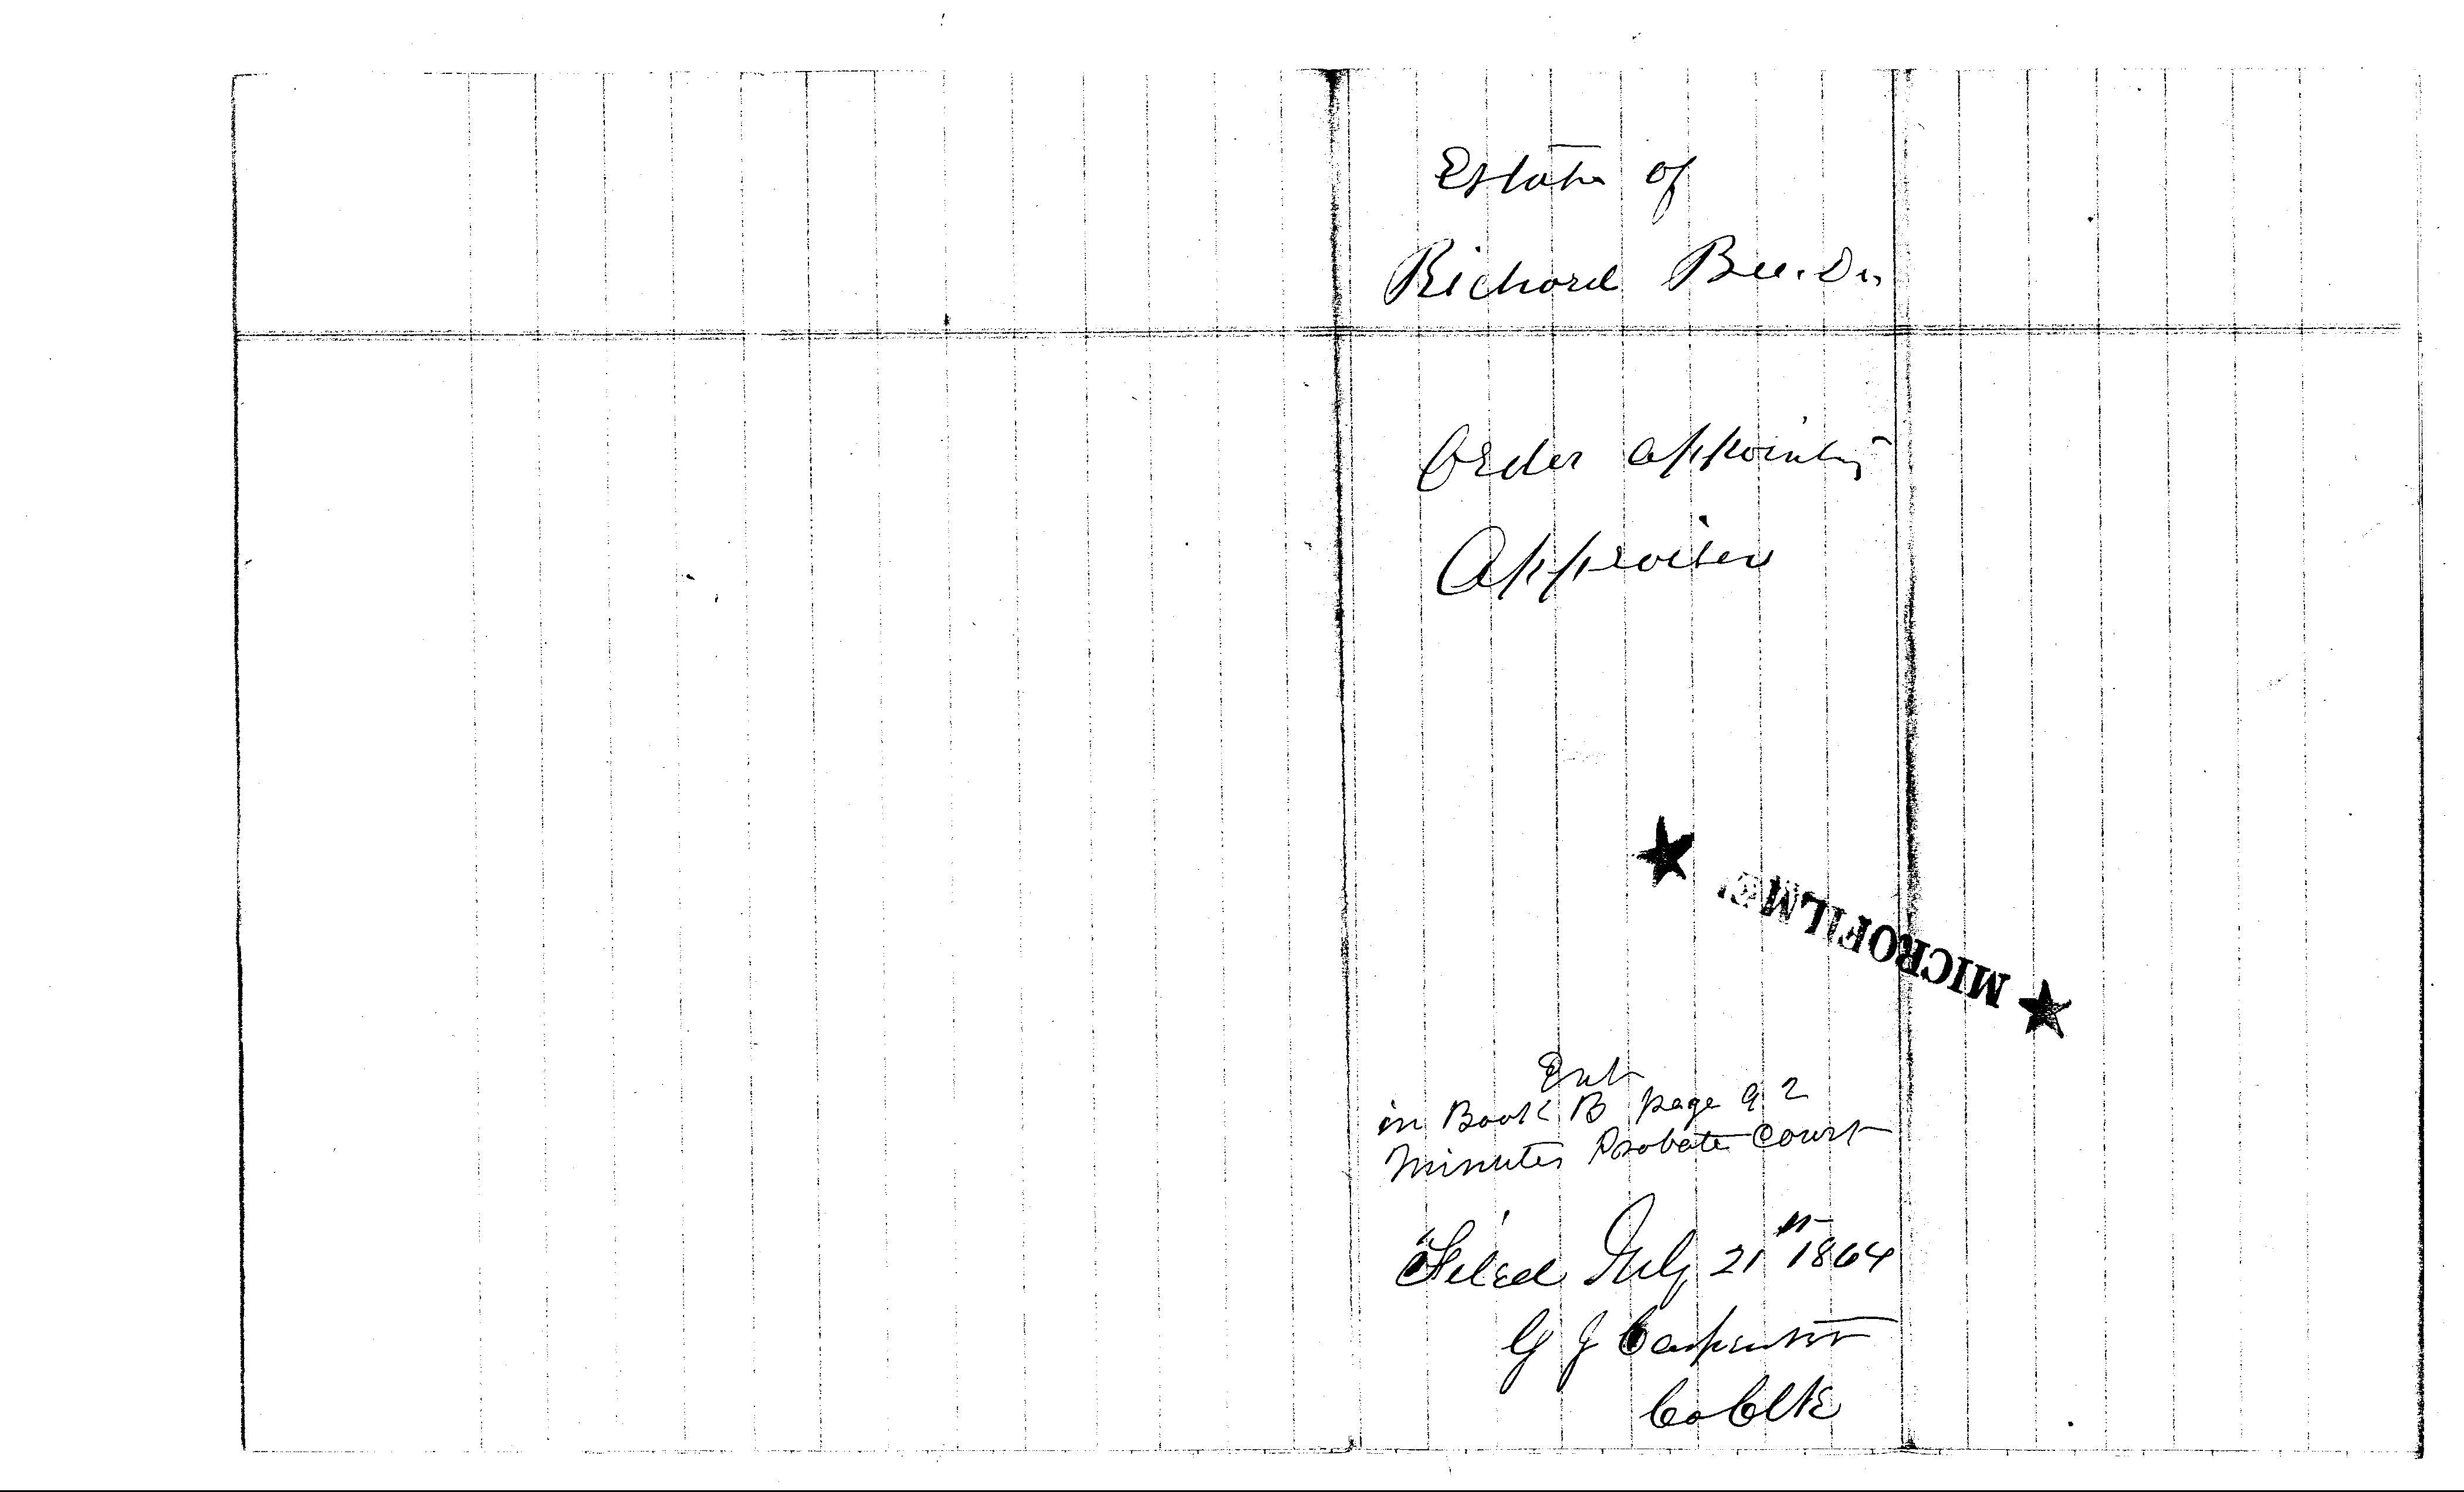 Estate of
Richard Bee. Dec.
Order appointing
Appraisers
★ MICROFILMED ★
Ent
in Book B page 92
Minutes Probate Court
Filed July 21st 1864
G J Carpenter
Co Clk